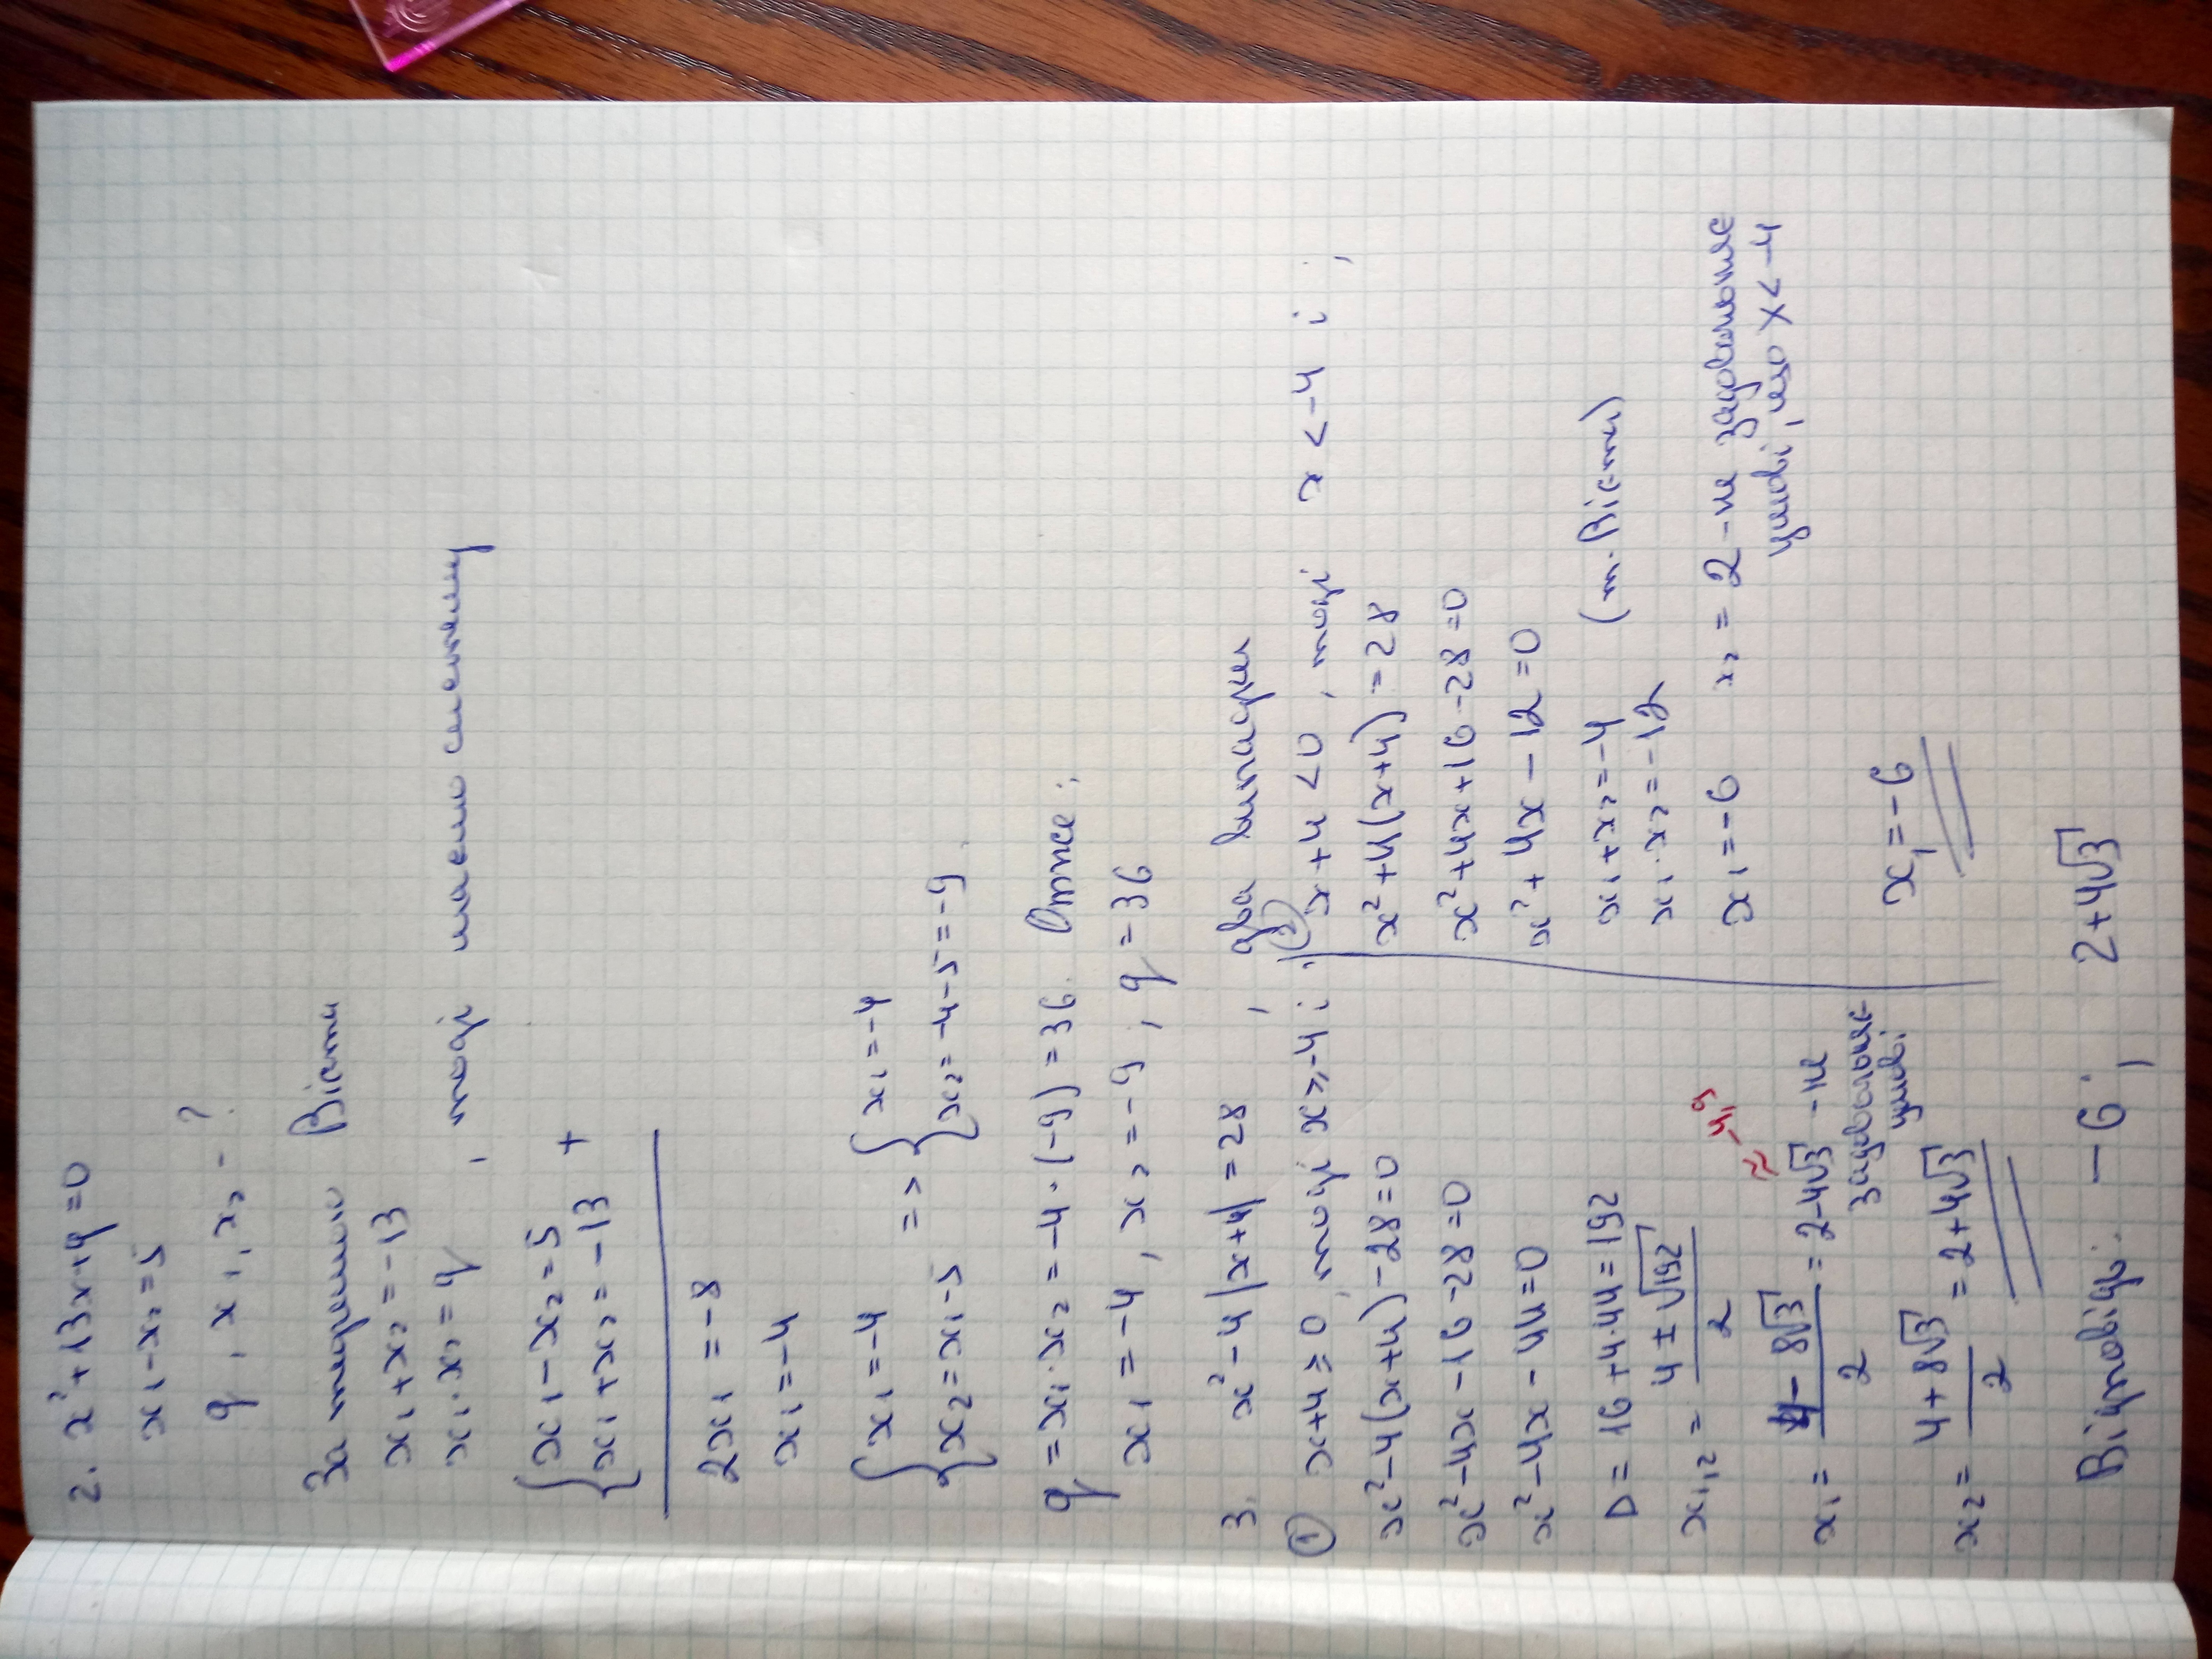 2. x² + 13x + q = 0
x₁ - x₂ = 5
q, x₁, x₂ - ?
За теремою Вієта
x₁ + x₂ = -13
x₁ · x₂ = q, тоді маємо систему
{ x₁ - x₂ = 5
{ x₁ + x₂ = -13 +
2x₁ = -8
x₁ = -4
{ x₁ = -4
{ x₂ = x₁ - 5 => { x₁ = -4
{ x₂ = -4 - 5 = -9.
q = x₁ · x₂ = -4 · (-9) = 36. Отже:
x₁ = -4, x₂ = -9, q = 36
3. x² - 4|x+4| = 28, два випадки
① x+4 ≥ 0, тоді x ≥ -4 і:
x² - 4(x+4) - 28 = 0
x² - 4x - 16 - 28 = 0
x² - 4x - 44 = 0
D = 16 + 4·44 = 192
x₁,₂ = (4 ± √192)/2
x₁ = (4 - 8√3)/2 = 2 - 4√3 - не
≈ -4,9
задовольняє
умові
x₂ = (4 + 8√3)/2 = 2 + 4√3
② x+4 < 0, тоді x < -4 і:
x² + 4(x+4) = 28
x² + 4x + 16 - 28 = 0
x² + 4x - 12 = 0
x₁ + x₂ = -4 (т. Вієта)
x₁ · x₂ = -12
x₁ = -6 x₂ = 2 - не задовольняє
умові, що x < -4
x₁ = -6
Відповідь: -6; 2 + 4√3